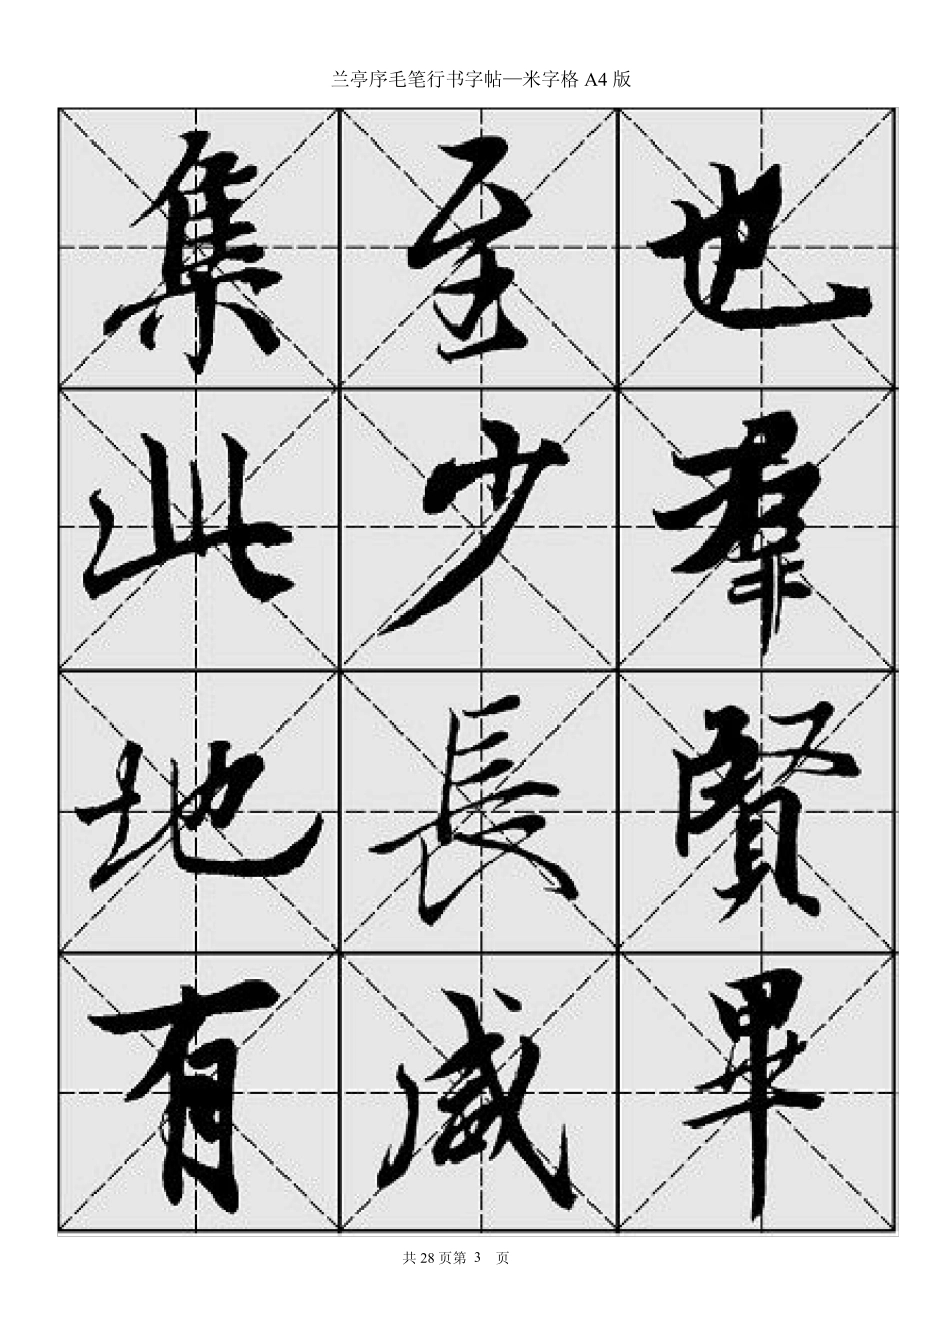 兰亭序毛笔行书字帖—米字格 A4 版
也羣賢畢
至少長咸
集此地有
共 28 页第 3 页